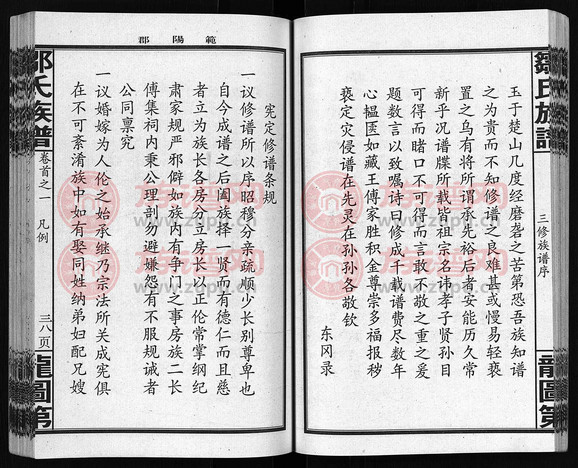 鄒氏族譜
三修族谱序
龍圖第
玉于楚山几度经磨砻之苦第恐吾族知谱
之为贵而不知修谱之良难甚或慢易轻亵
置之乌有将所谓承先裕后者安能历久常
新乎况谱牒所载皆祖宗名讳孝子贤孙目
可得而睹口不可得而言敢不敬之重之爰
题数言以致嘱诗曰修成千载谱费尽数年
心韫匮如藏王傅家胜积金尊崇多福报秽
亵定灾侵谱在先灵在孙孙各敬钦
东冈录
範陽郡
宪定修谱条规
一议修谱所以序昭穆分亲疏顺少长别尊卑也
自今成谱之后阖族择一贤而有德仁而且慈
者立为族长各房分立房长以正伦常掌纲纪
肃家规严邪僻如族内有争门之事房族二长
傅集祠内秉公理剖勿避嫌怨有不服规诫者
公同禀究
一议婚嫁为人伦之始承继乃宗法所关成宪俱
在不可紊淆族中如有娶同姓纳弟妇配兄嫂
邹氏族普
卷首之一
凡例
三八页
龍圖第
族谱网
www.zupu.cn
族谱网
www.zupu.cn